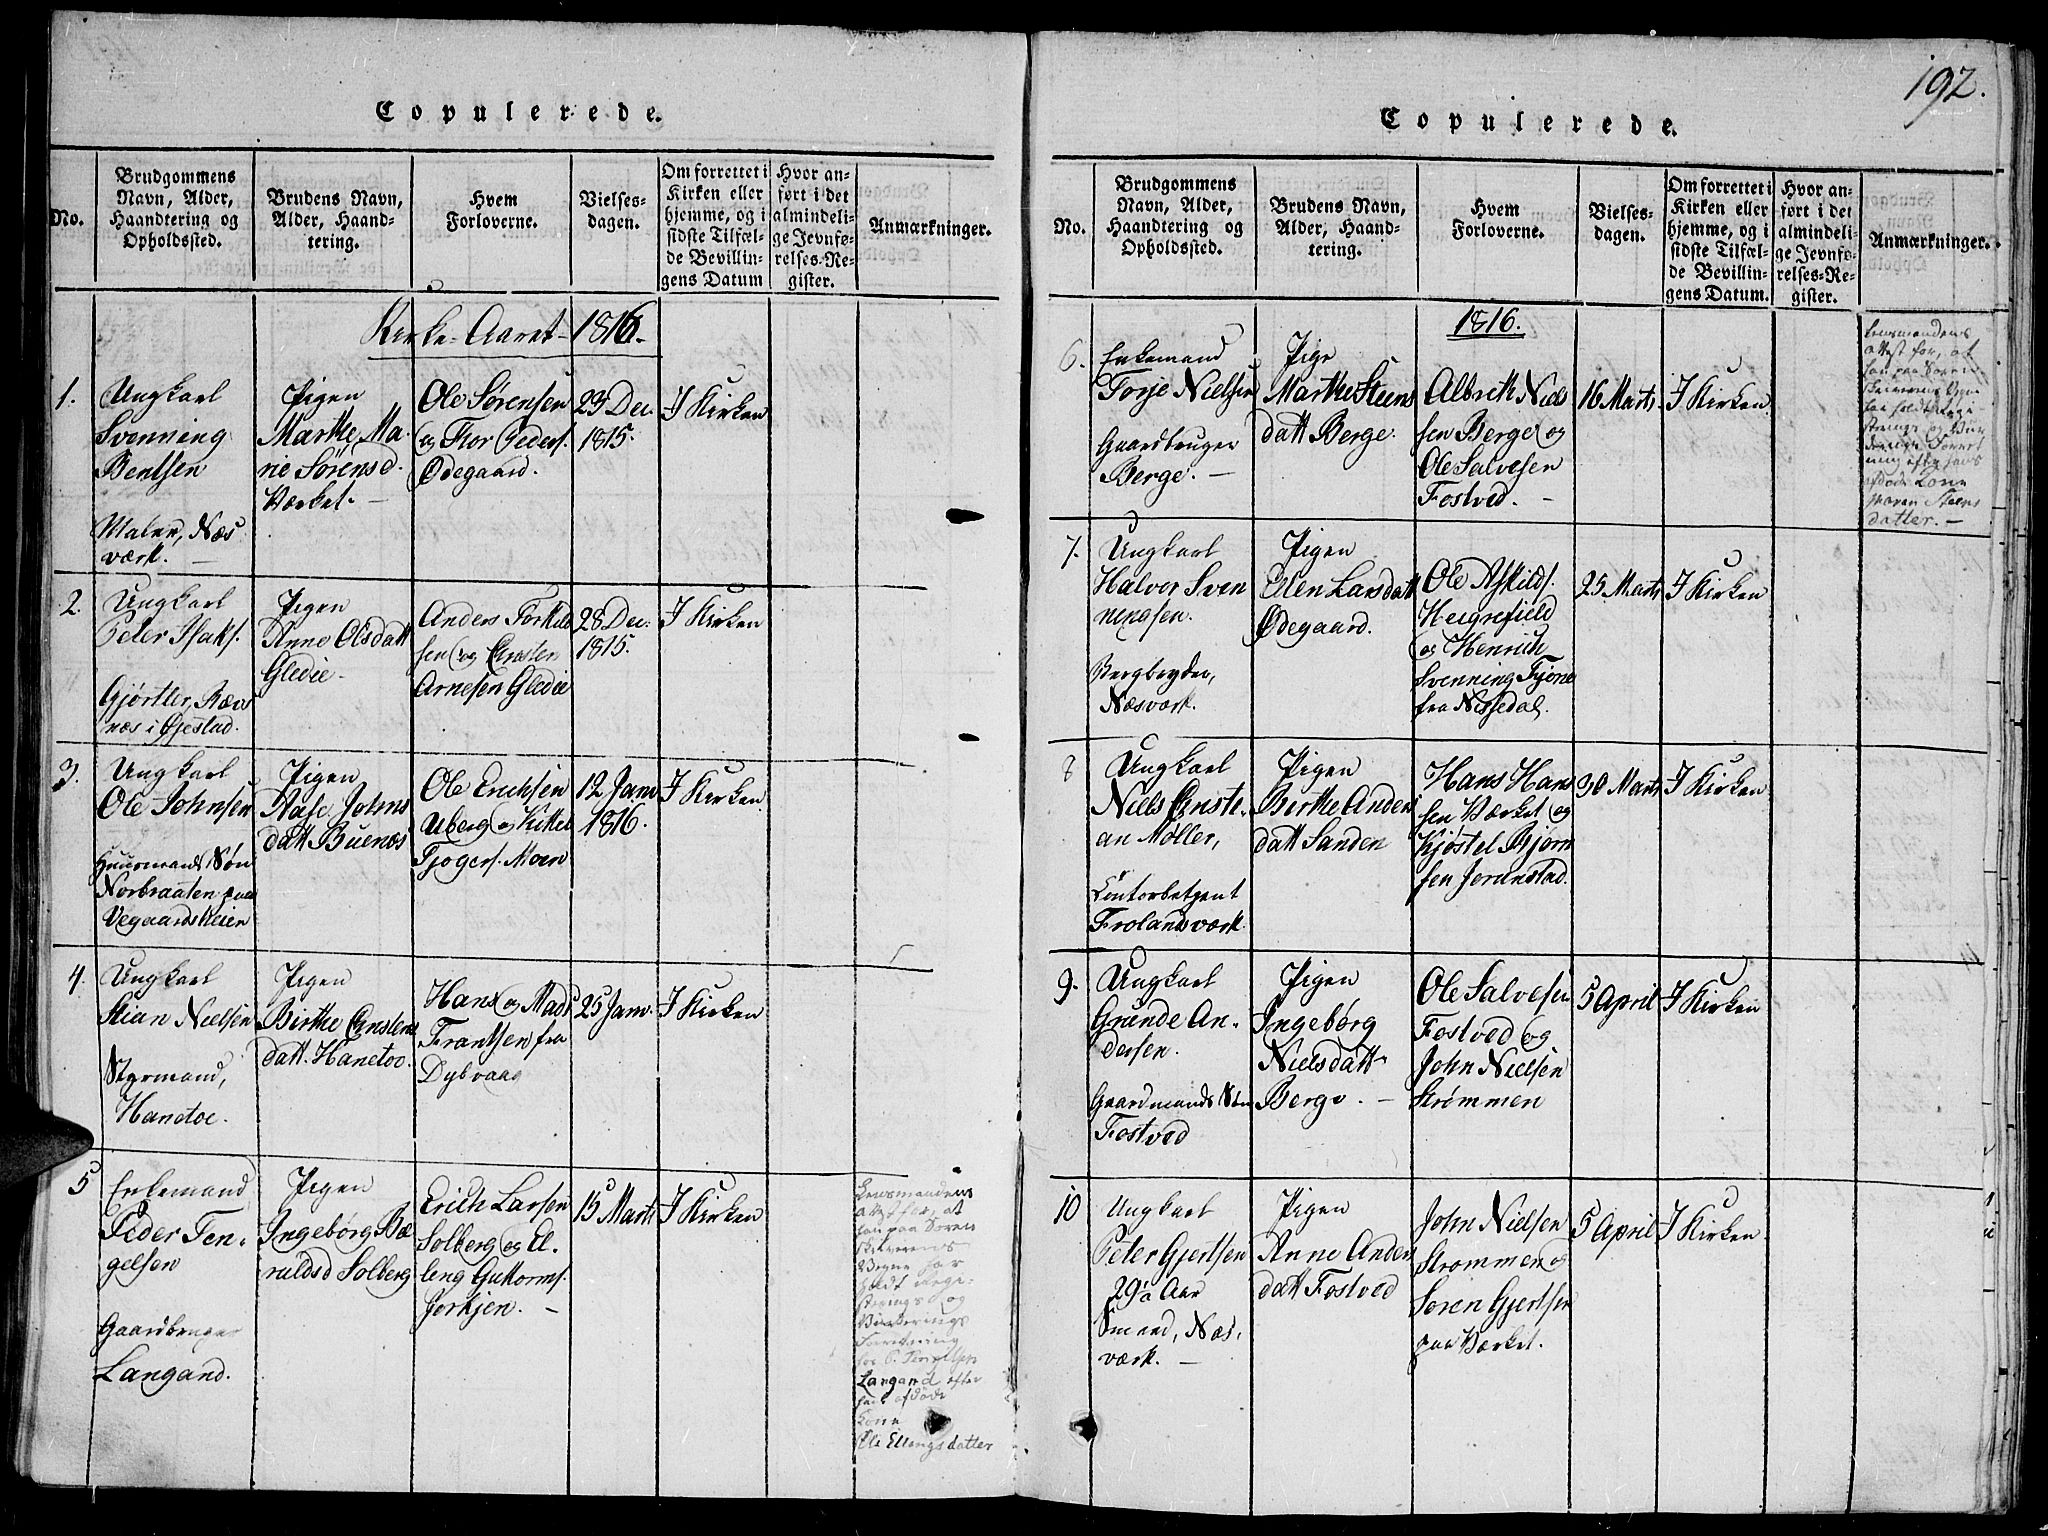 192.
Copulerede.
No.
Brudgommens
Navn, Alder,
Haandtering og
Opholdssted.
Brudens Navn,
Alder, Haand-
tering.
Hvem
Forloverne.
Vielses-
dagen.
Om forrettet i
Kirken eller
hjemme, og i
sidste Tilfæl-
de Bevillin-
gens Datum
Hvor an-
ført i det
almindeli-
ge Jevnfø-
relses-Re-
gister.
Anmærkninger.
Kirke-Aaret 1816.
1.
Ungkarl
Svenning
Bentsen
Maler, Næs
værk. —
Pigen
Marthe Ma-
rie Sørensd.
Værket. —
Ole Sørensen
og Thor Peders.
Ødegaard.
23 Dec.
1815.
I Kirken
2.
Ungkarl
Peter Isaks.
Gjørtler, Ræv
næs i Øjestad.
Pigen
Anne Olsdatt
Gledie
Anders Torkild
sen og Christen
Arnesen Gledie
28 Dec.
1815.
I Kirken
3.
Ungkarl
Ole Johnsen
Huusmands Søn
Norbraaten paa
Vegaardsheien
Pigen
Aase Johns
datt Buenæs
Ole Erichsen
Uberg og Kittel
Tjøgers. Moen
12 Janv
1816.
I Kirken
4.
Ungkarl
Stian Nielsen
Styrmand,
Hanetoe.
Pigen
Birthe Christens
datt. Hanetoe.
Hans og Mads
Frantsen fra
Dybvaag
25 Janv.
I Kirken
5
Enkemand
Peder Ten-
gelsen
Gaardbruger
Langand.
Pigen
Ingebørg Bæ
ruldsd Solberg
Erich Larsen
Solberg og El-
leng Guttorms.
Jorkjen. —
15 Marts
I Kirken
Lensmandens
Attest for, at
han paa Soren
skriverens
Vegne har
holdt Regi-
strerings og
Vurderings
Forretning
for P. Tengelsen
Langand efter
hans afdøde
Kone
Ellengsdatter
Copulerede.
No.
Brudgommens
Navn, Alder,
Haandtering og
Opholdssted.
Brudens Navn,
Alder, Haand-
tering.
Hvem
Forloverne.
Vielses-
dagen.
Om forrettet i
Kirken eller
hjemme, og i
sidste Tilfæl-
de Bevillin-
gens Datum.
Hvor an-
ført i det
almindeli-
ge Jevnfø-
relses-Re-
gister.
Anmærkninger.
1816.
6.
Enkemand
Torje Nielsen
Gaardbruger
Berge. —
Pige
Marthe Steens
datt Berge.
Albreth Niels
sen Berge og
Ole Salvesen
Fostved. —
16 Marts
I Kirken
Lensmandens
Attest for, at
han paa Soren
skriverens Vegne
har holdt Regi-
strerings og Vur
derings Forret
ning efter hans
afdøde Kone
Maren Steens
datter. —
7.
Ungkarl
Halvor Sven
ningsen.
Bergbryder,
Næsværk.
Pigen
Ellen Larsdatt
Ødegaard.
Ole Askilds.
Heigrefield
og Henrich
Svenning Tjøne
fra Nissedal.
25 Marts
I Kirken
8
Ungkarl
Niels Christi-
an Møller,
Contorbetjent
Frolandsværk.
Pigen
Birthe Anders
datt Sanden
Hans Hans
sen Værket og
Kjøstel Bjørn
sen Jorunstad.
30 Marts
I Kirken
9.
Ungkarl
Grunde An-
dersen.
Gaardmands Søn
Fostved
Pigen
Ingebørg
Nielsdatt
Berge. —
Ole Salvesen
Fostved og
John Nielsen
Strømmen
5 April
I Kirken
10
Ungkarl
Peter Gjertsen
29½ Aar
Smed, Næs-
værk. —
Pigen
Anne Anders
datt Fostved
John Nielsen
Strømmen og
Søren Gjertsen
paa Værket.
5 April
I Kirken